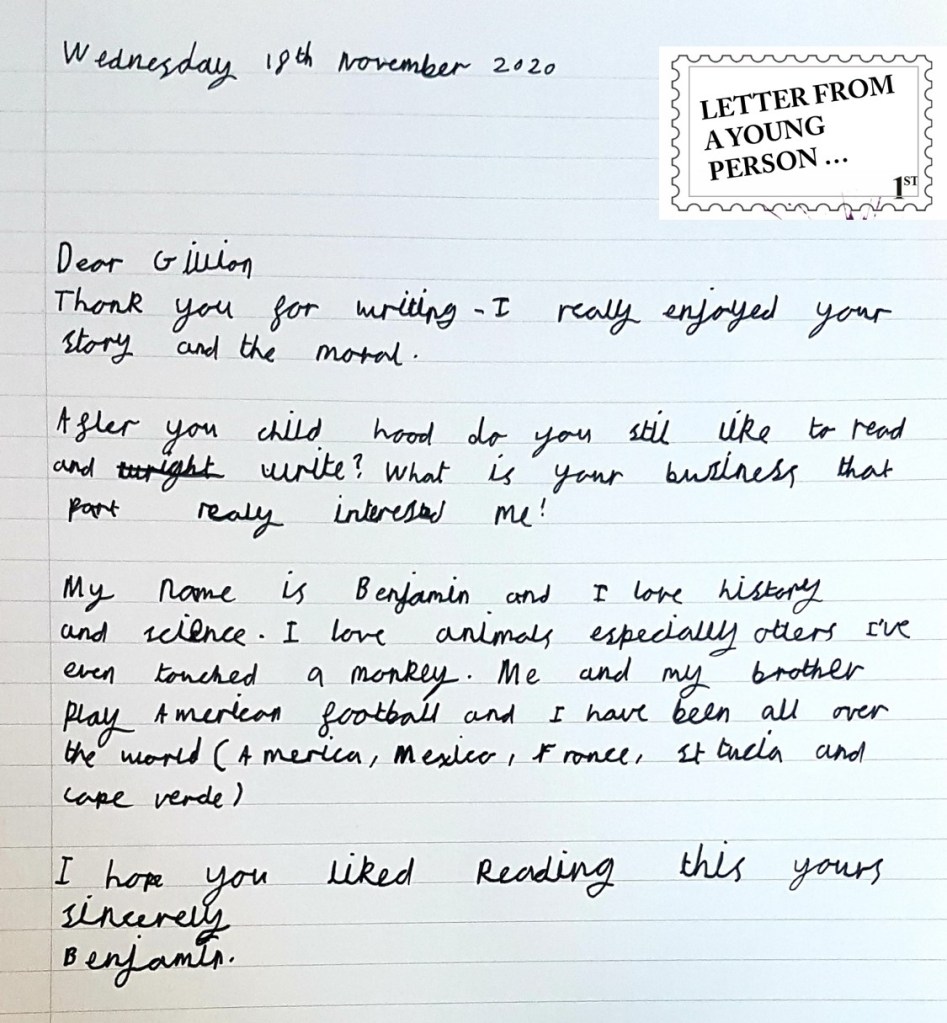 Wednesday 18th November 2020
LETTER FROM
A YOUNG
PERSON ...
1ST
Dear Gillian
Thank you for writing - I really enjoyed your
story and the moral.
After you child hood do you stil like to read
and wright write? What is your business that
part realy interested me!
My name is Benjamin and I love history
and science. I love animals especially otters I've
even touched a monkey. Me and my brother
play American football and I have been all over
the world (America, Mexico, France, St Lucia and
cape verde)
I hope you liked Reading this yours
sincerely
Benjamin.